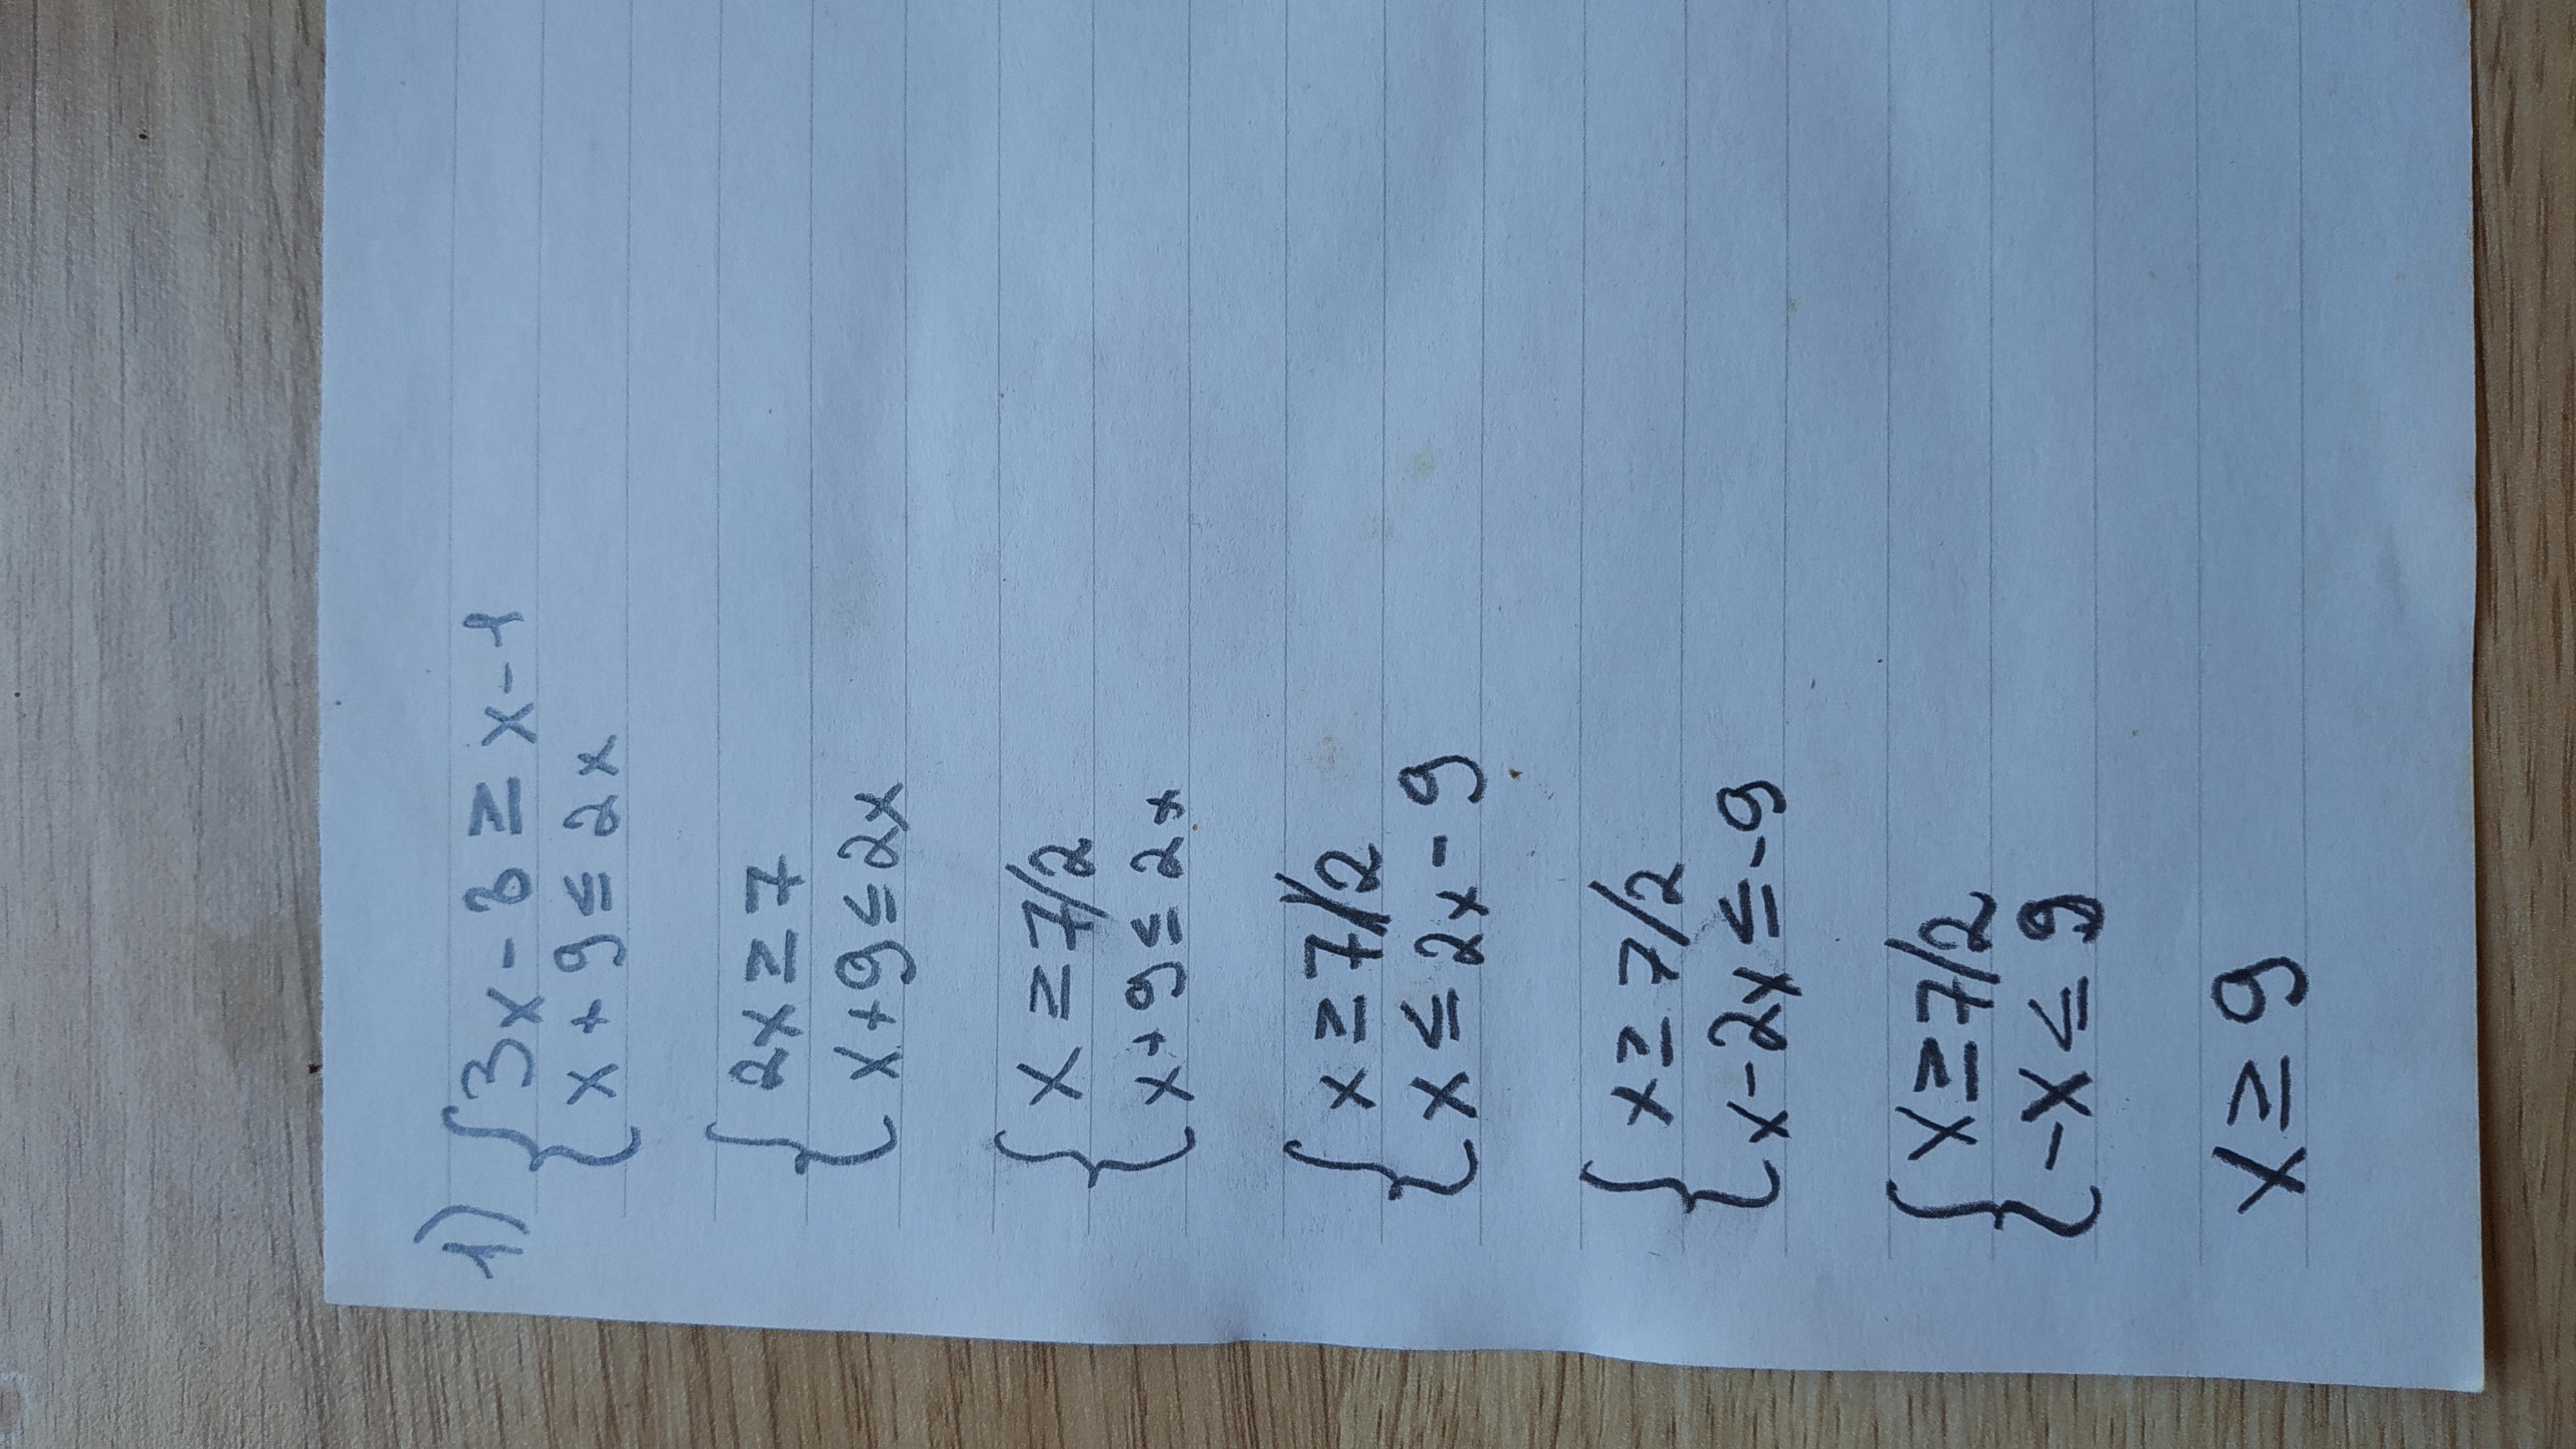 1) { 3x - 8 ≥ x - 1
x + 9 ≤ 2x
{ 2x ≥ 7
x + 9 ≤ 2x
{ x ≥ 7/2
x + 9 ≤ 2x
{ x ≥ 7/2
x ≤ 2x - 9
{ x ≥ 7/2
x - 2x ≤ -9
{ x ≥ 7/2
-x ≤ 9
x ≥ 9